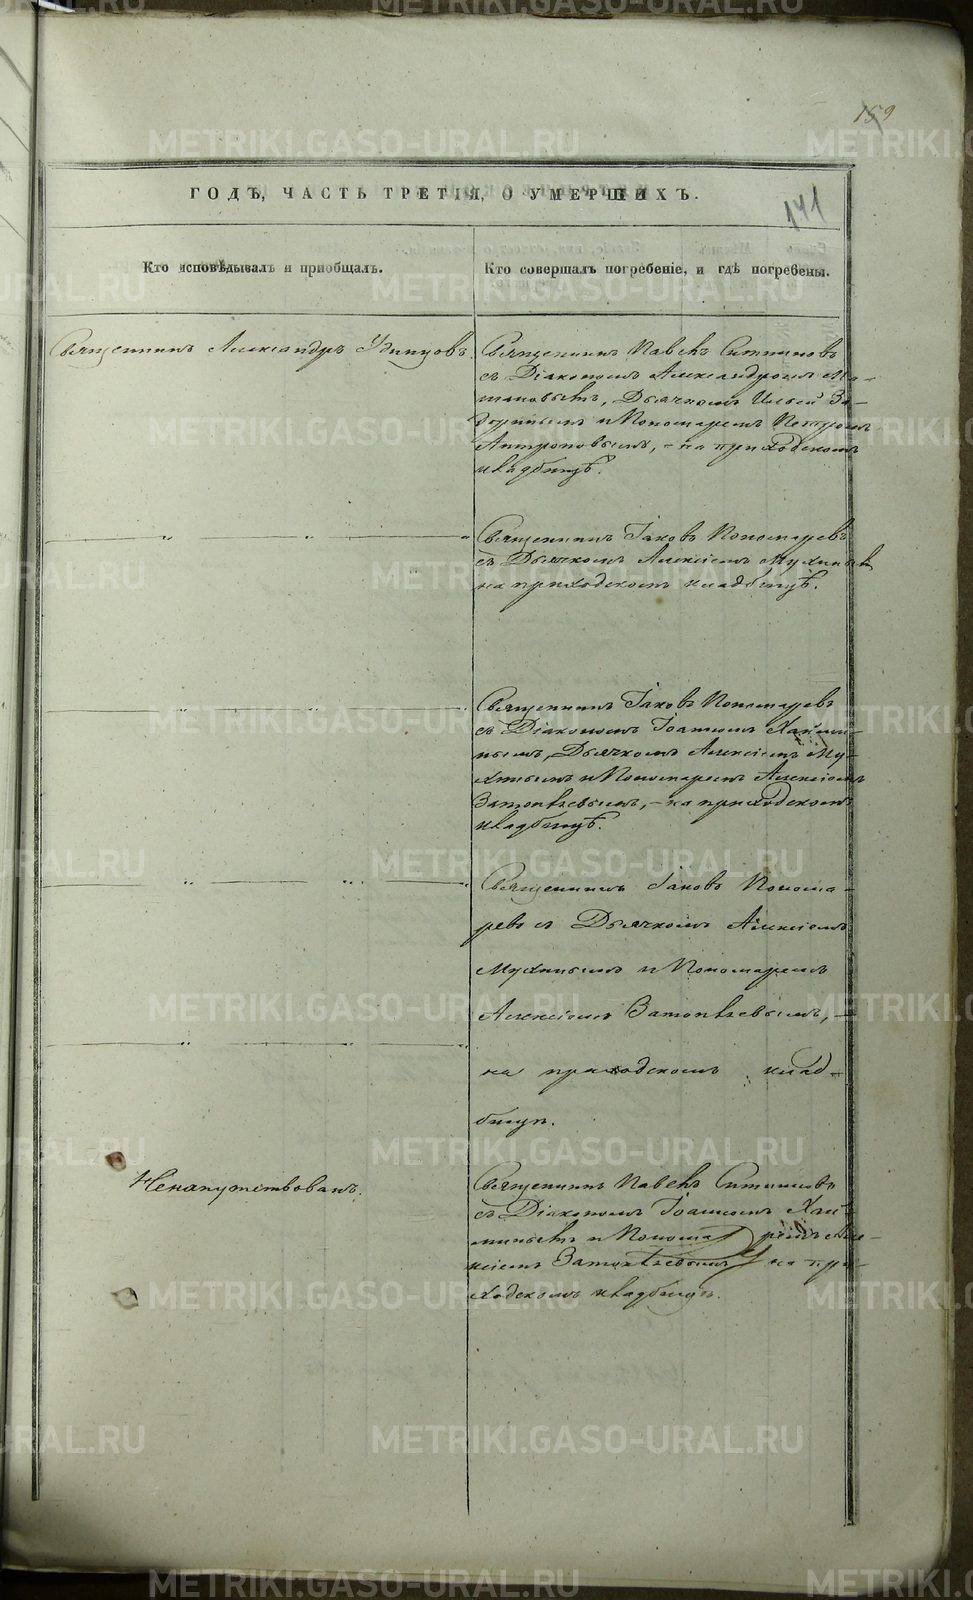 159
ГОДЪ, ЧАСТЬ ТРЕТІЯ, О УМЕРШИХЪ.
141
Кто исповѣдывалъ и приобщалъ.
Кто совершалъ погребеніе, и гдѣ погребены.
Священникъ Александръ Удинцовъ.
Священникъ Павелъ
съ Діакономъ Александромъ
Дьячкомъ Ильей За-
и Пономаремъ Петромъ
Антроповымъ, - на приходскомъ
кладбищѣ.
Священникъ Іаковъ Пономаревъ
съ Дьячкомъ Алексіемъ Мухинымъ
на приходскомъ кладбищѣ.
Священникъ Іаковъ Пономаревъ
съ Діакономъ Іоанномъ Хаймин-
нымъ, Дьячкомъ Алексіемъ Му-
хинымъ и Пономаремъ Алексіемъ
Затопляевымъ, - на приходскомъ
кладбищѣ.
Священникъ Іаковъ Понома-
ревъ съ Дьячкомъ Алексіемъ
Мухинымъ и Пономаремъ
Алексіемъ Затопляевымъ, -
на приходскомъ клад-
бищѣ.
Ненапутствованъ.
Священникъ Павелъ
съ Діакономъ Іоанномъ Хай-
минымъ и Пономаремъ Але-
ксіемъ Затопляевымъ на при-
ходскомъ кладбищѣ.
METRIKI.GASO-URAL.RU